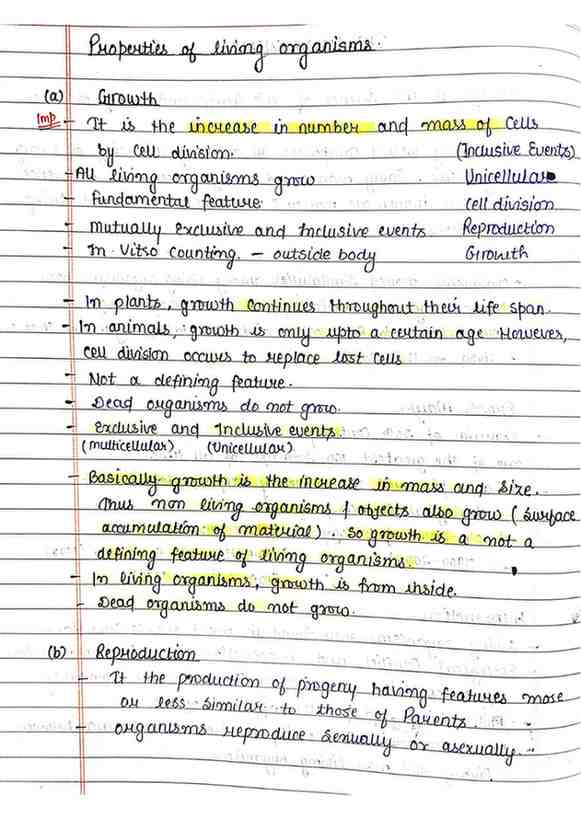 Properties of living organisms.
(a) Growth
Imp - It is the increase in number and mass of cells
by cell division. (Inclusive Events)
- All living organisms grow Unicellular
- Fundamental feature cell division
- Mutually Exclusive and Inclusive events Reproduction
- In Vitro counting. - outside body Growth
- In plants, growth continues throughout their life span.
- In animals, growth is only upto a certain age However,
cell division occurs to replace lost cells
- Not a defining feature.
- Dead organisms do not grow.
- Exclusive and Inclusive events.
(multicellular) (Unicellular)
- Basically growth is the increase in mass and size.
Thus non living organisms / objects also grow (surface
accumulation of material). So growth is a not a
defining feature of living organisms.
- In living organisms, growth is from inside.
- Dead organisms do not grow.
(b) Reproduction
- It the production of progeny having features more
or less similar to those of Parents.
- organisms reproduce sexually or asexually.